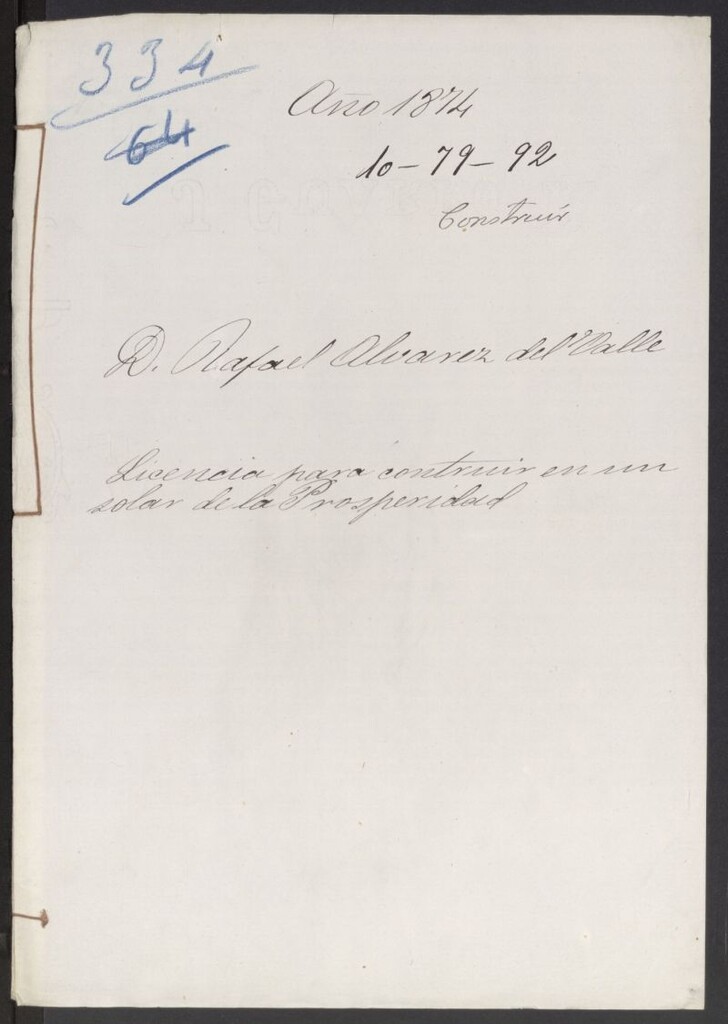 334
64
Año 1874
10-79-92
Construir
D. Rafael Alvarez del Valle
Licencia para contruir en un
solar de la Prosperidad